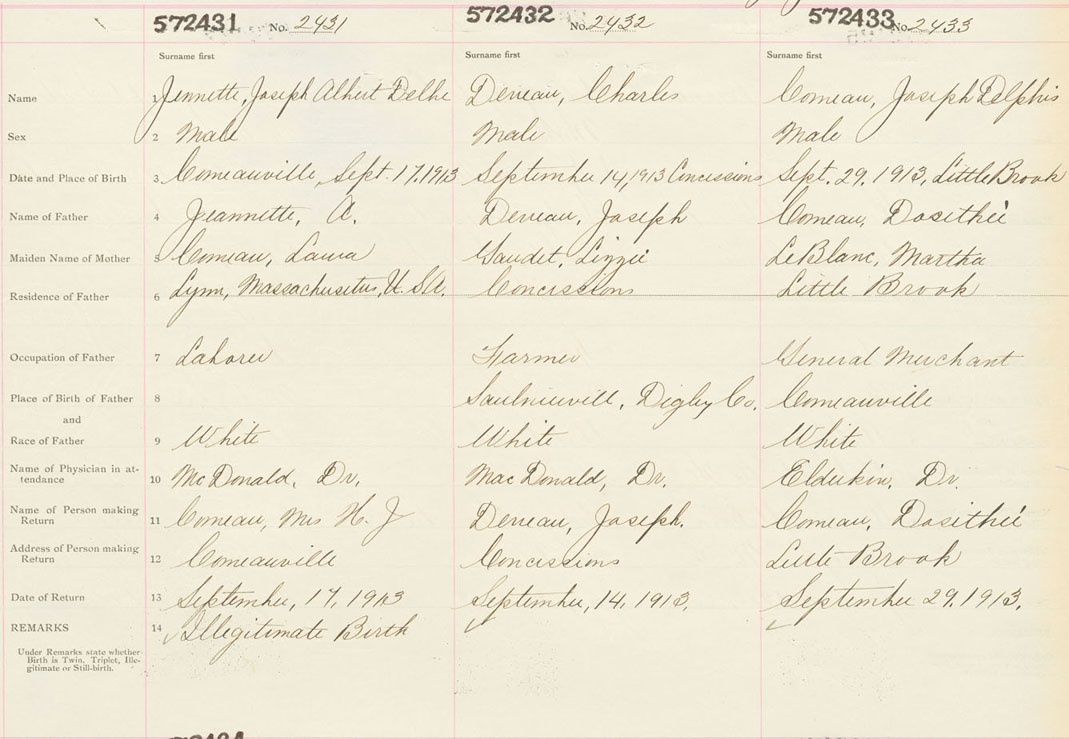 572431 No. 2431 572432 No. 2432 572433 No. 2433
Surname first Surname first Surname first
Name 1 Jennette, Joseph Albert Delbe Deveau, Charles Comeau, Joseph Delphis
Sex 2 Male Male Male
Date and Place of Birth 3 Comeauville, Sept. 17, 1913 September 14, 1913 Concissions Sept. 29, 1913, Little Brook
Name of Father 4 Jeannette, A. Deveau, Joseph Comeau, Dosithée
Maiden Name of Mother 5 Comeau, Laura Gaudet, Lizzie LeBlanc, Martha
Residence of Father 6 Lynn, Massachusetus, U.S.A. Concissions Little Brook
Occupation of Father 7 Laborer Farmer General Merchant
Place of Birth of Father 8 Saulnierville, Digby Co. Comeauville
and
Race of Father 9 White White White
Name of Physician in at-
tendance 10 McDonald, Dr. MacDonald, Dr. Elderkin, Dr.
Name of Person making
Return 11 Comeau, Mrs H. J Deveau, Joseph. Comeau, Dosithée
Address of Person making
Return 12 Comeauville Concissions Little Brook
Date of Return 13 September, 17, 1913 September, 14, 1913. September 29, 1913.
REMARKS 14 Illegitimate Birth
Under Remarks state whether
Birth is Twin, Triplet, Ille-
gitimate or Still-birth.